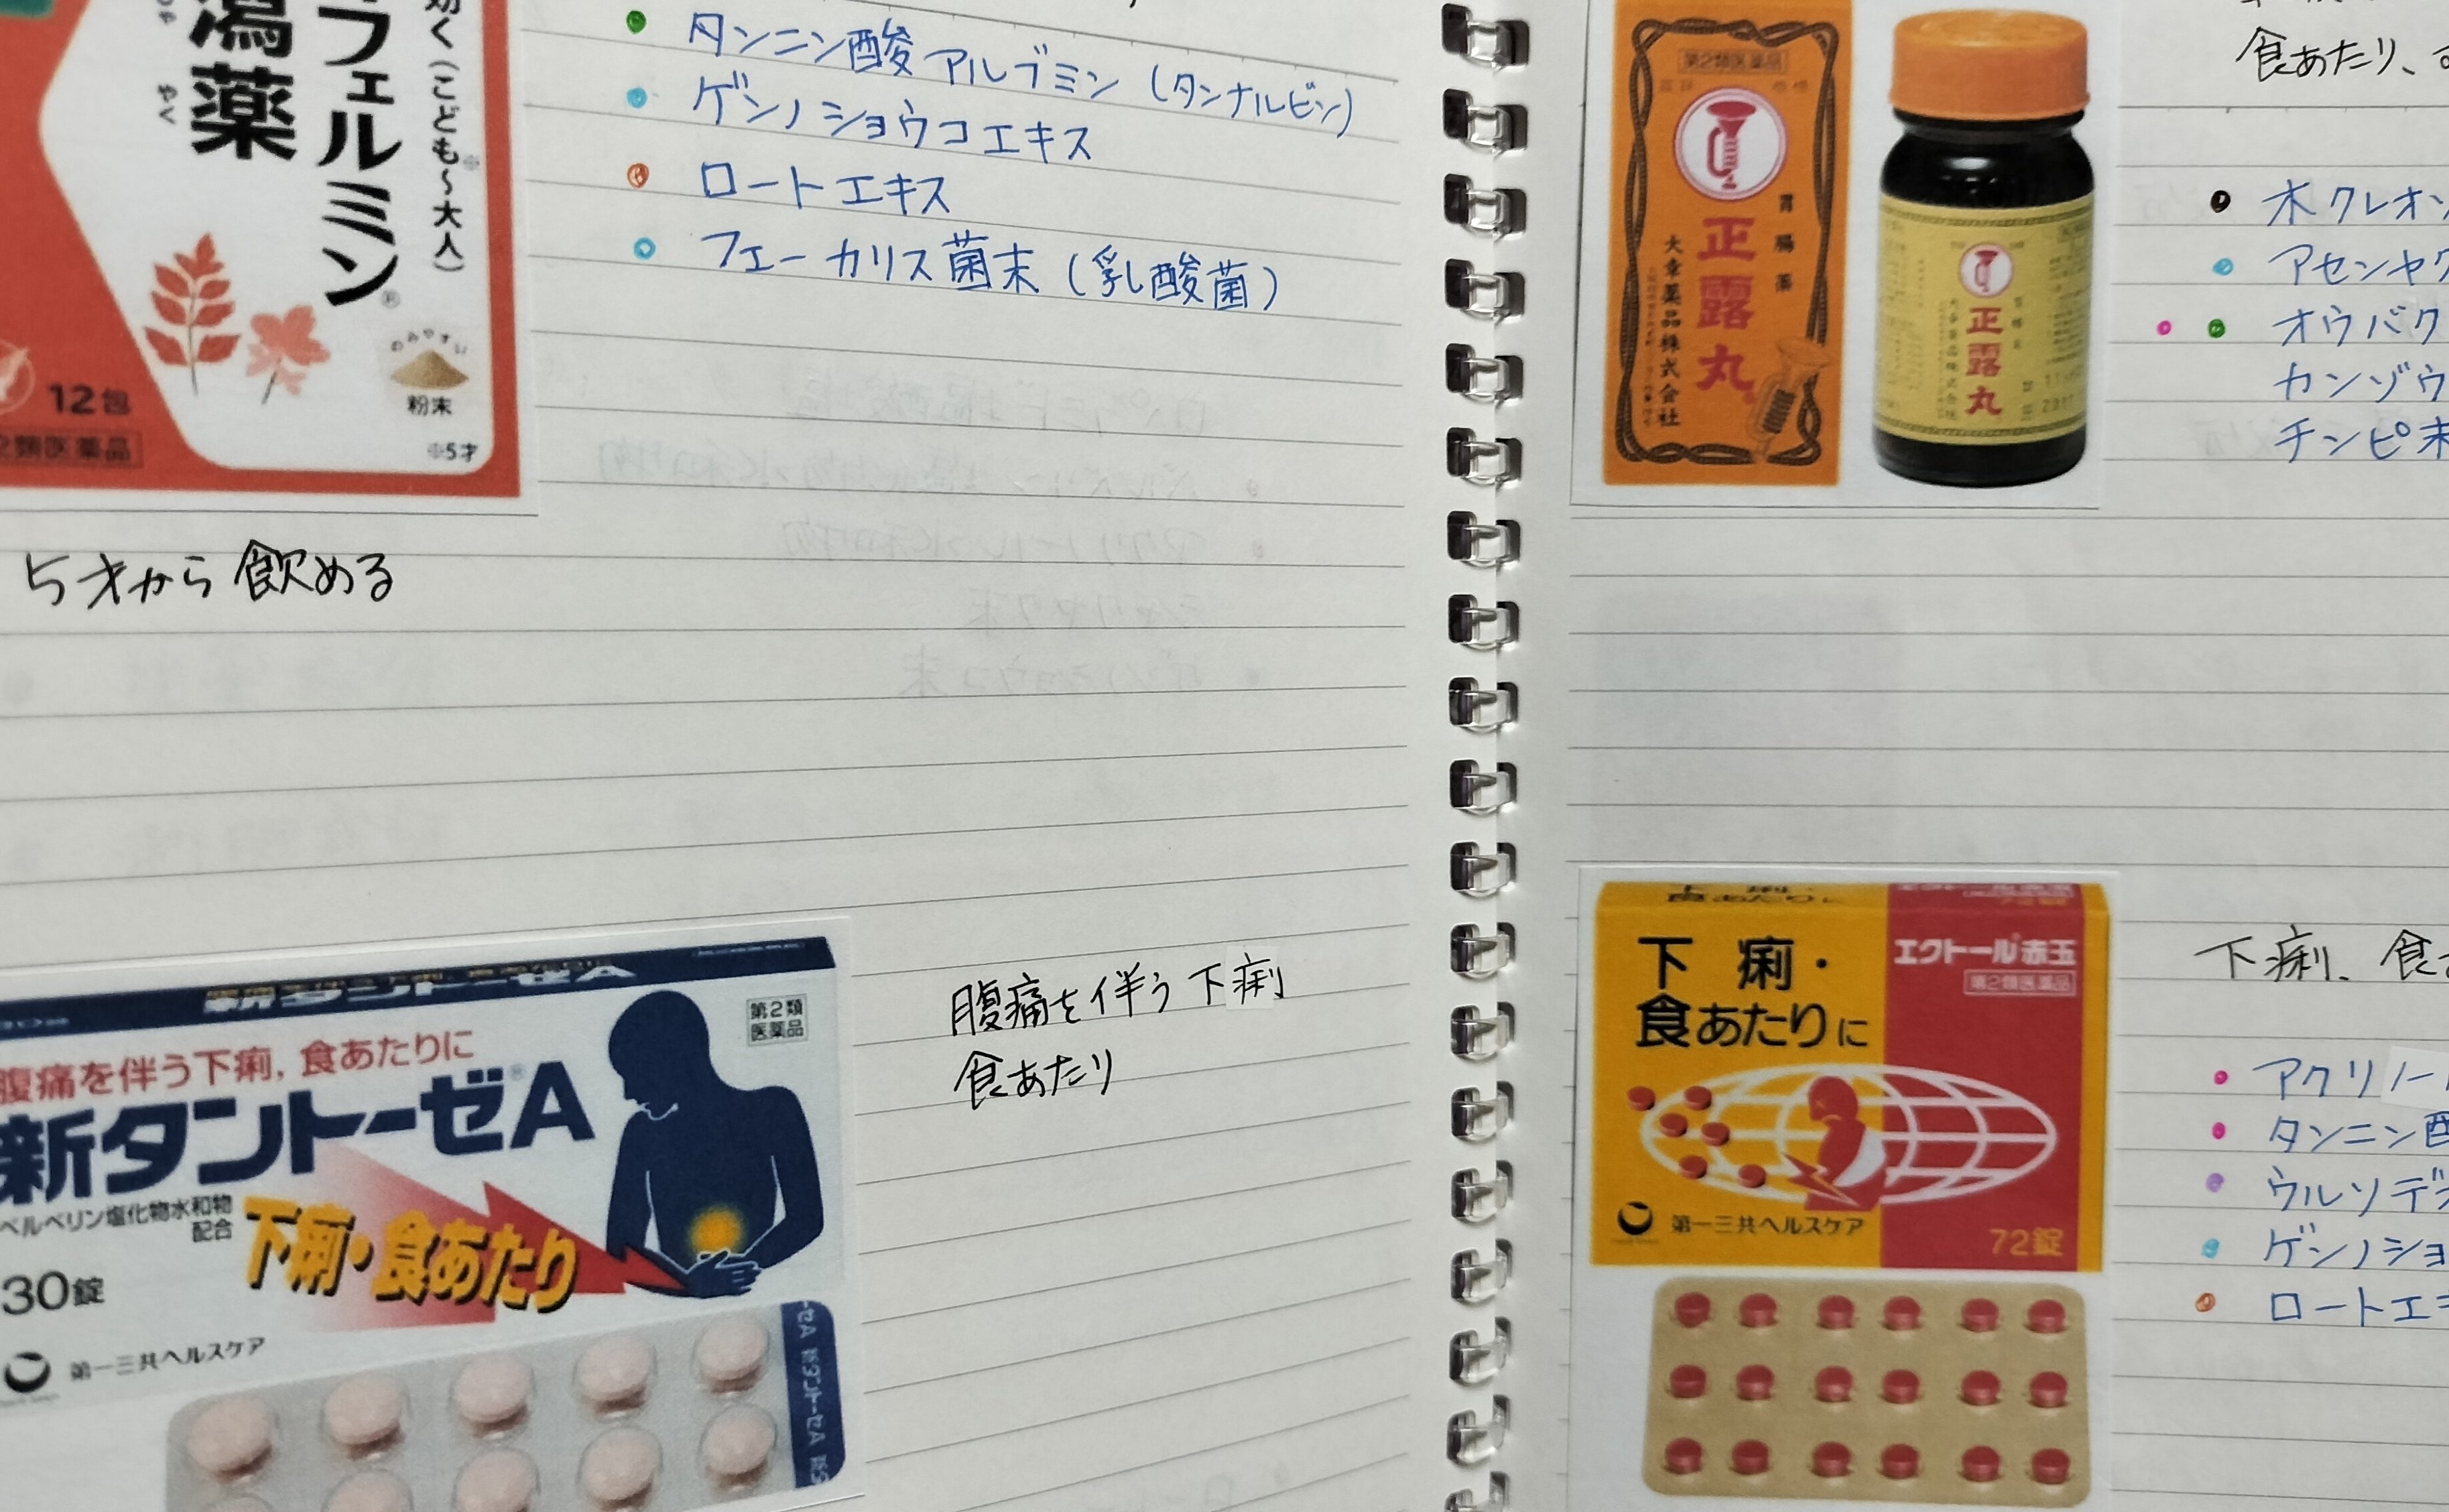 瀉薬
やく
フェルミン®
効く(こども※～大人)
のみやすい
粉末
※5才
12包
2類医薬品
タンニン酸アルブミン (タンナルビン)
ゲンノショウコエキス
ロートエキス
フェーカリス菌末 (乳酸菌)
5才から飲める
新タントーゼA
第2類
医薬品
腹痛を伴う下痢,食あたりに
新タントーゼA
ベルベリン塩化物水和物
配合
下痢・食あたり
30錠
第一三共ヘルスケア
ーゼA 新タントーゼA 新タ
腹痛を伴う下痢
食あたり
第2類医薬品
胃腸薬
正露丸
大幸薬品株式会社
正露丸
食あたり、
木クレオソ
アセンヤク
オウバク
カンゾウ
チンピ末
食あたりに
下痢・
食あたりに
エクトール赤玉
第2類医薬品
第一三共ヘルスケア
72錠
下痢、食あ
アクリノー
タンニン酸
ウルソデオ
ゲンノショ
ロートエキ